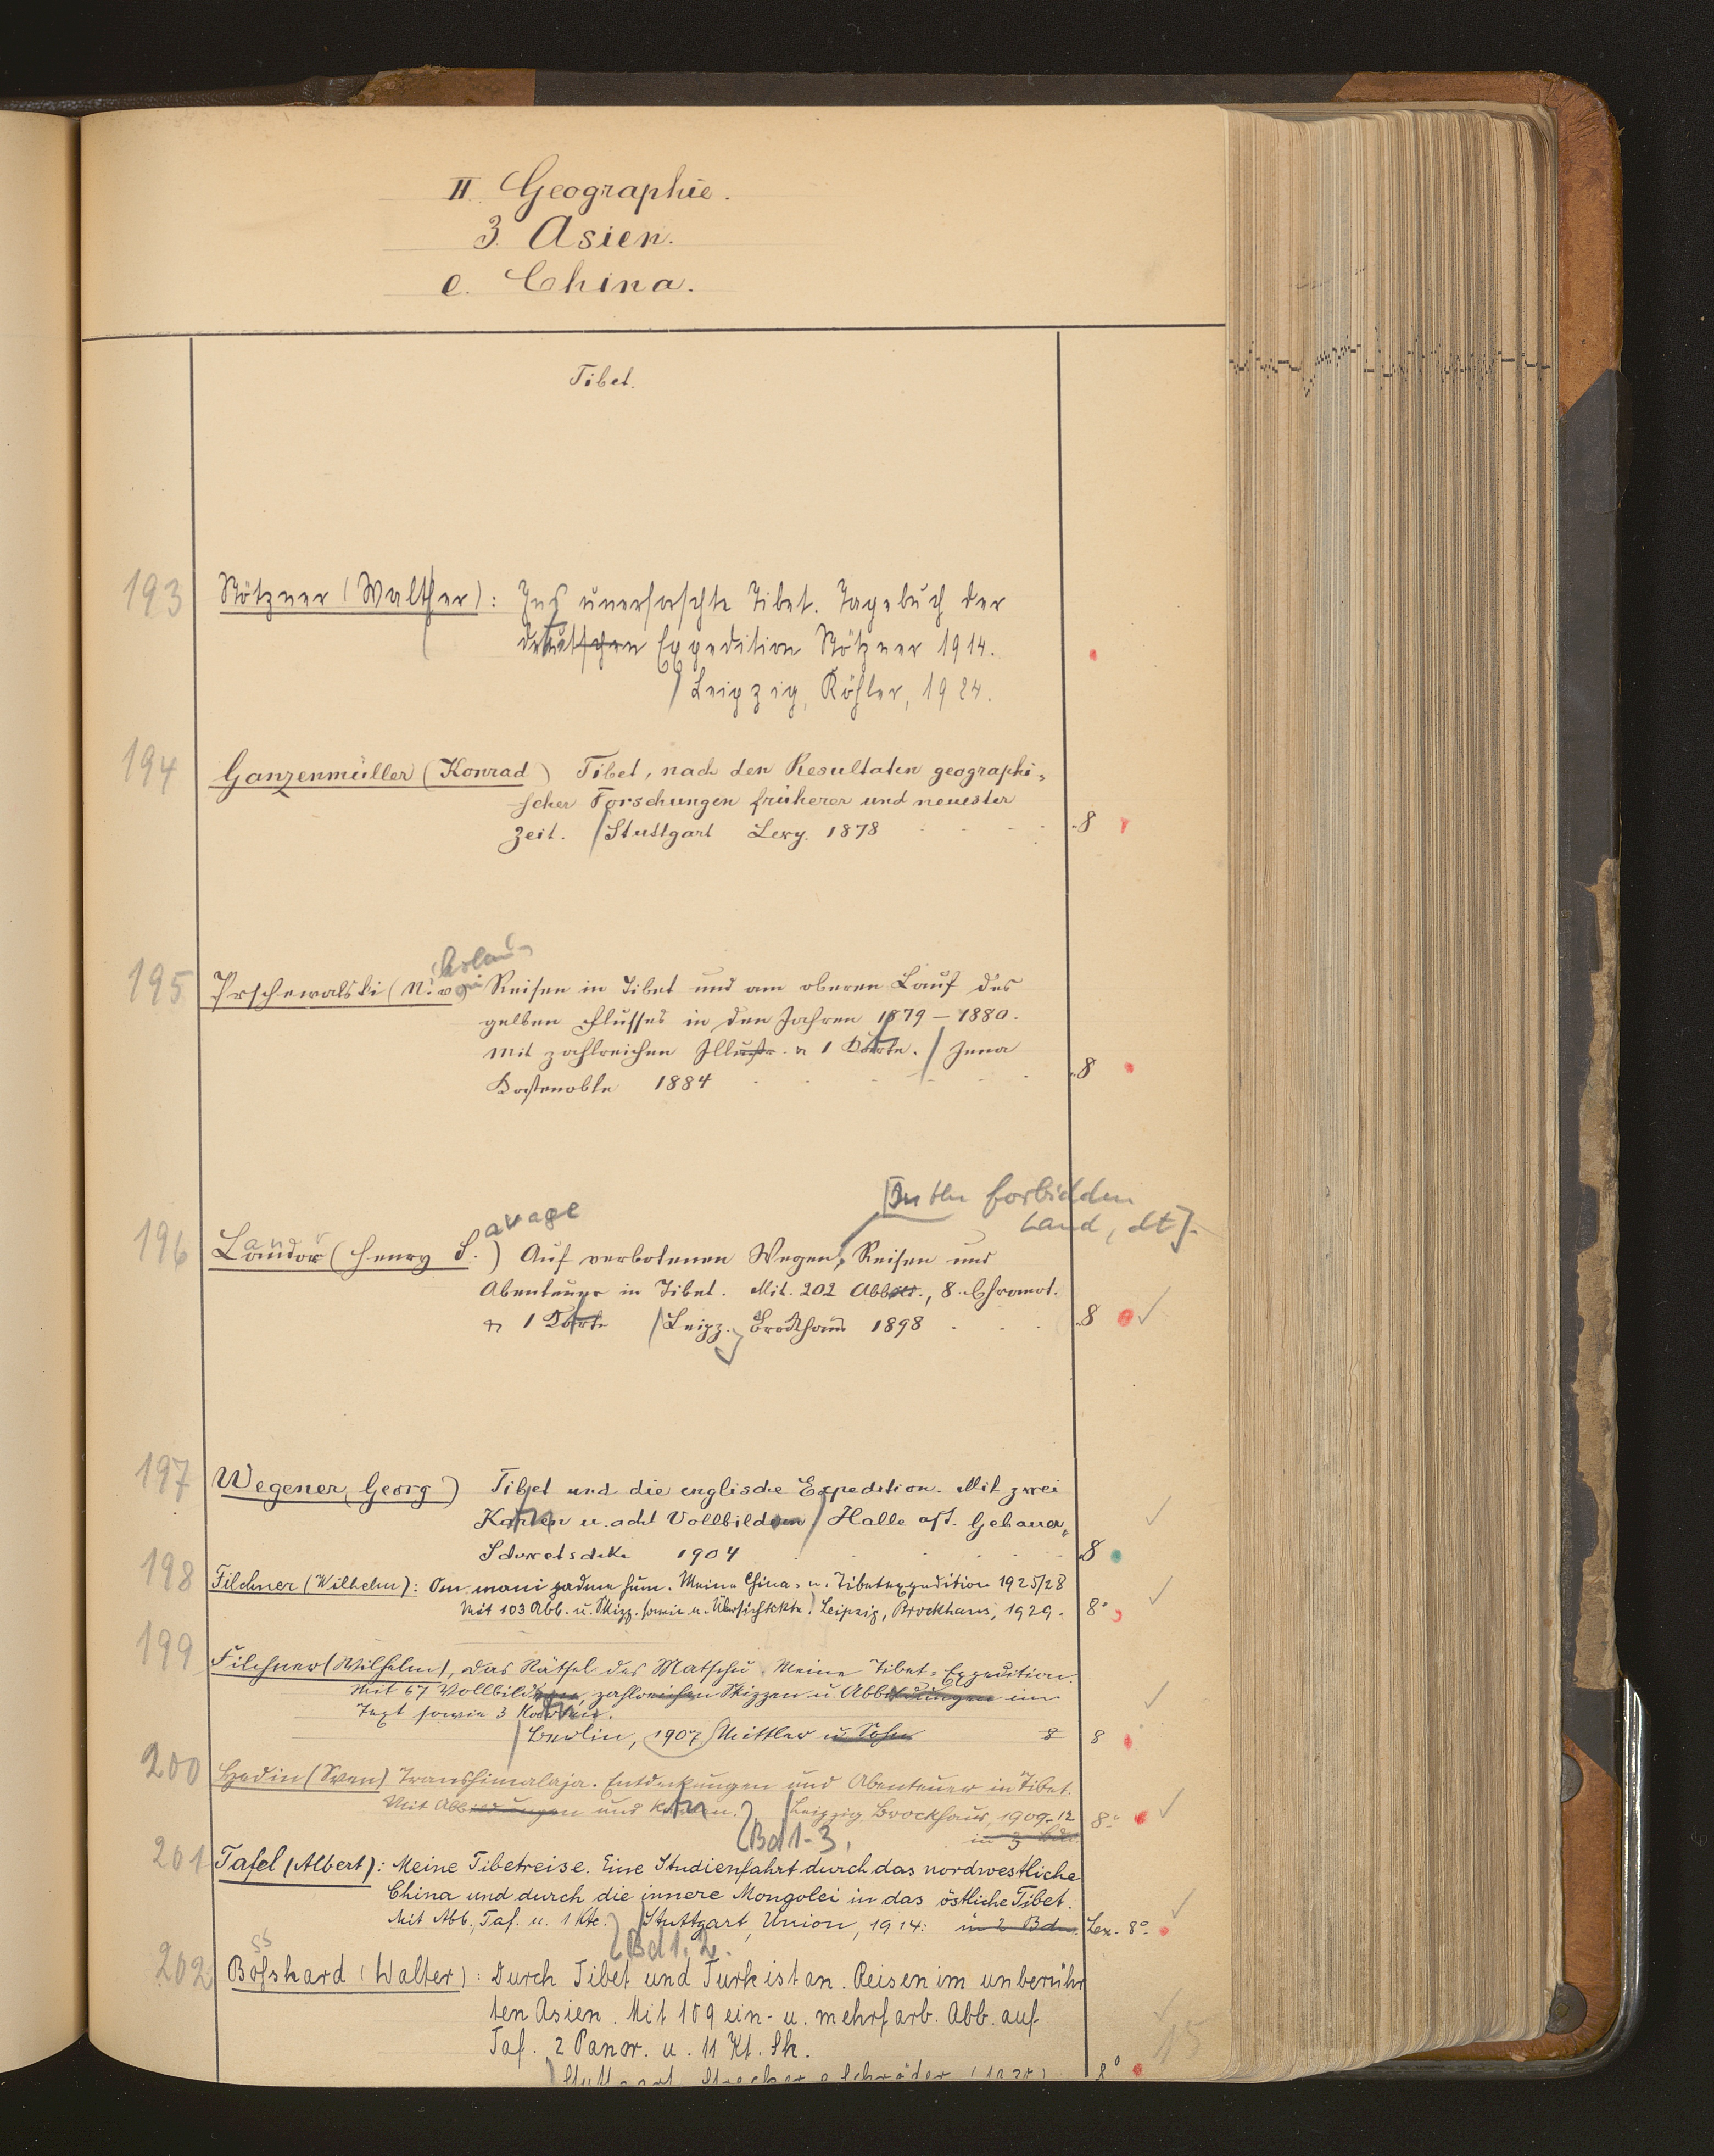 II. Geographie.
3. Asien.
e. China.
Tibet.
193 Stötzner (Walther): Ins unerforschte Tibet. Tagebuch der
deutschen Expedition Stötzner 1914.
Leipzig, Köhler, 1924.
194 Ganzenmüller (Konrad) Tibet, nach den Resultaten geographi=
scher Forschungen früherer und neuester
Zeit. Stuttgart Levy. 1878 8
195 Prschewalski (N. von Reisen in Tibet und am oberen Lauf des
gelben Flusses in den Jahren 1879-1880.
Mit zahlreichen Illustr. u 1 Karte. / Jena
Costenoble 1884 8
[In the forbidden
Land, dt].
avage
196 Landor (Henry S.) Auf verbotenen Wegen, Reisen und
Abenteuer in Tibet. Mit. 202 Abb., 8. Chromot.
u 1 Karte / Leipz. Brockhaus 1898 8
197 Wegener, Georg) Tibet und die englische Expedition. Mit zwei
Karten u. acht Vollbildern / Halle a/S. Gebauer=
Schwetschke 1904 8
198 Filchner (Wilhelm): Om mani padme hum. Meine China- u. Tibetexpedition 1925/28
Mit 103 Abb. u. Skizz. sowie u. Übersichtskte. Leipzig, Brockhaus, 1929. 8°
199 Filchner (Wilhelm), Das Rätsel des Matschu. Meine Tibet=Expedition.
Mit 67 Vollbildern, zahlreichen Skizzen u. Abbildungen im
Text sowie 3 Karten.
Berlin, 1907 Mittler u Sohn 8 8
200 Hedin (Sven) Transhimalaja. Entdeckungen und Abenteuer in Tibet.
Mit Abbildungen und Karten. Leipzig Brockhaus, 1909-12 8°
Bd 1-3. in 3 Bde.
201 Tafel (Albert): Meine Tibetreise. Eine Studienfahrt durch das nordwestliche
China und durch die innere Mongolei in das östliche Tibet.
Mit Abb., Taf. u. 1 Kte. Stuttgart, Union, 1914: in 2 Bdn. Lex. 8°
Bd 1. 2.
ss
202 Boßhard (Walter): Durch Tibet und Turkistan. Reisen im unberühr
ten Asien. Mit 109 ein- u. mehrfarb. Abb. auf
Taf. 2 Panor. u. 11 Kt. Sk.
15
Stuttgart Strecker & Schröder 8°